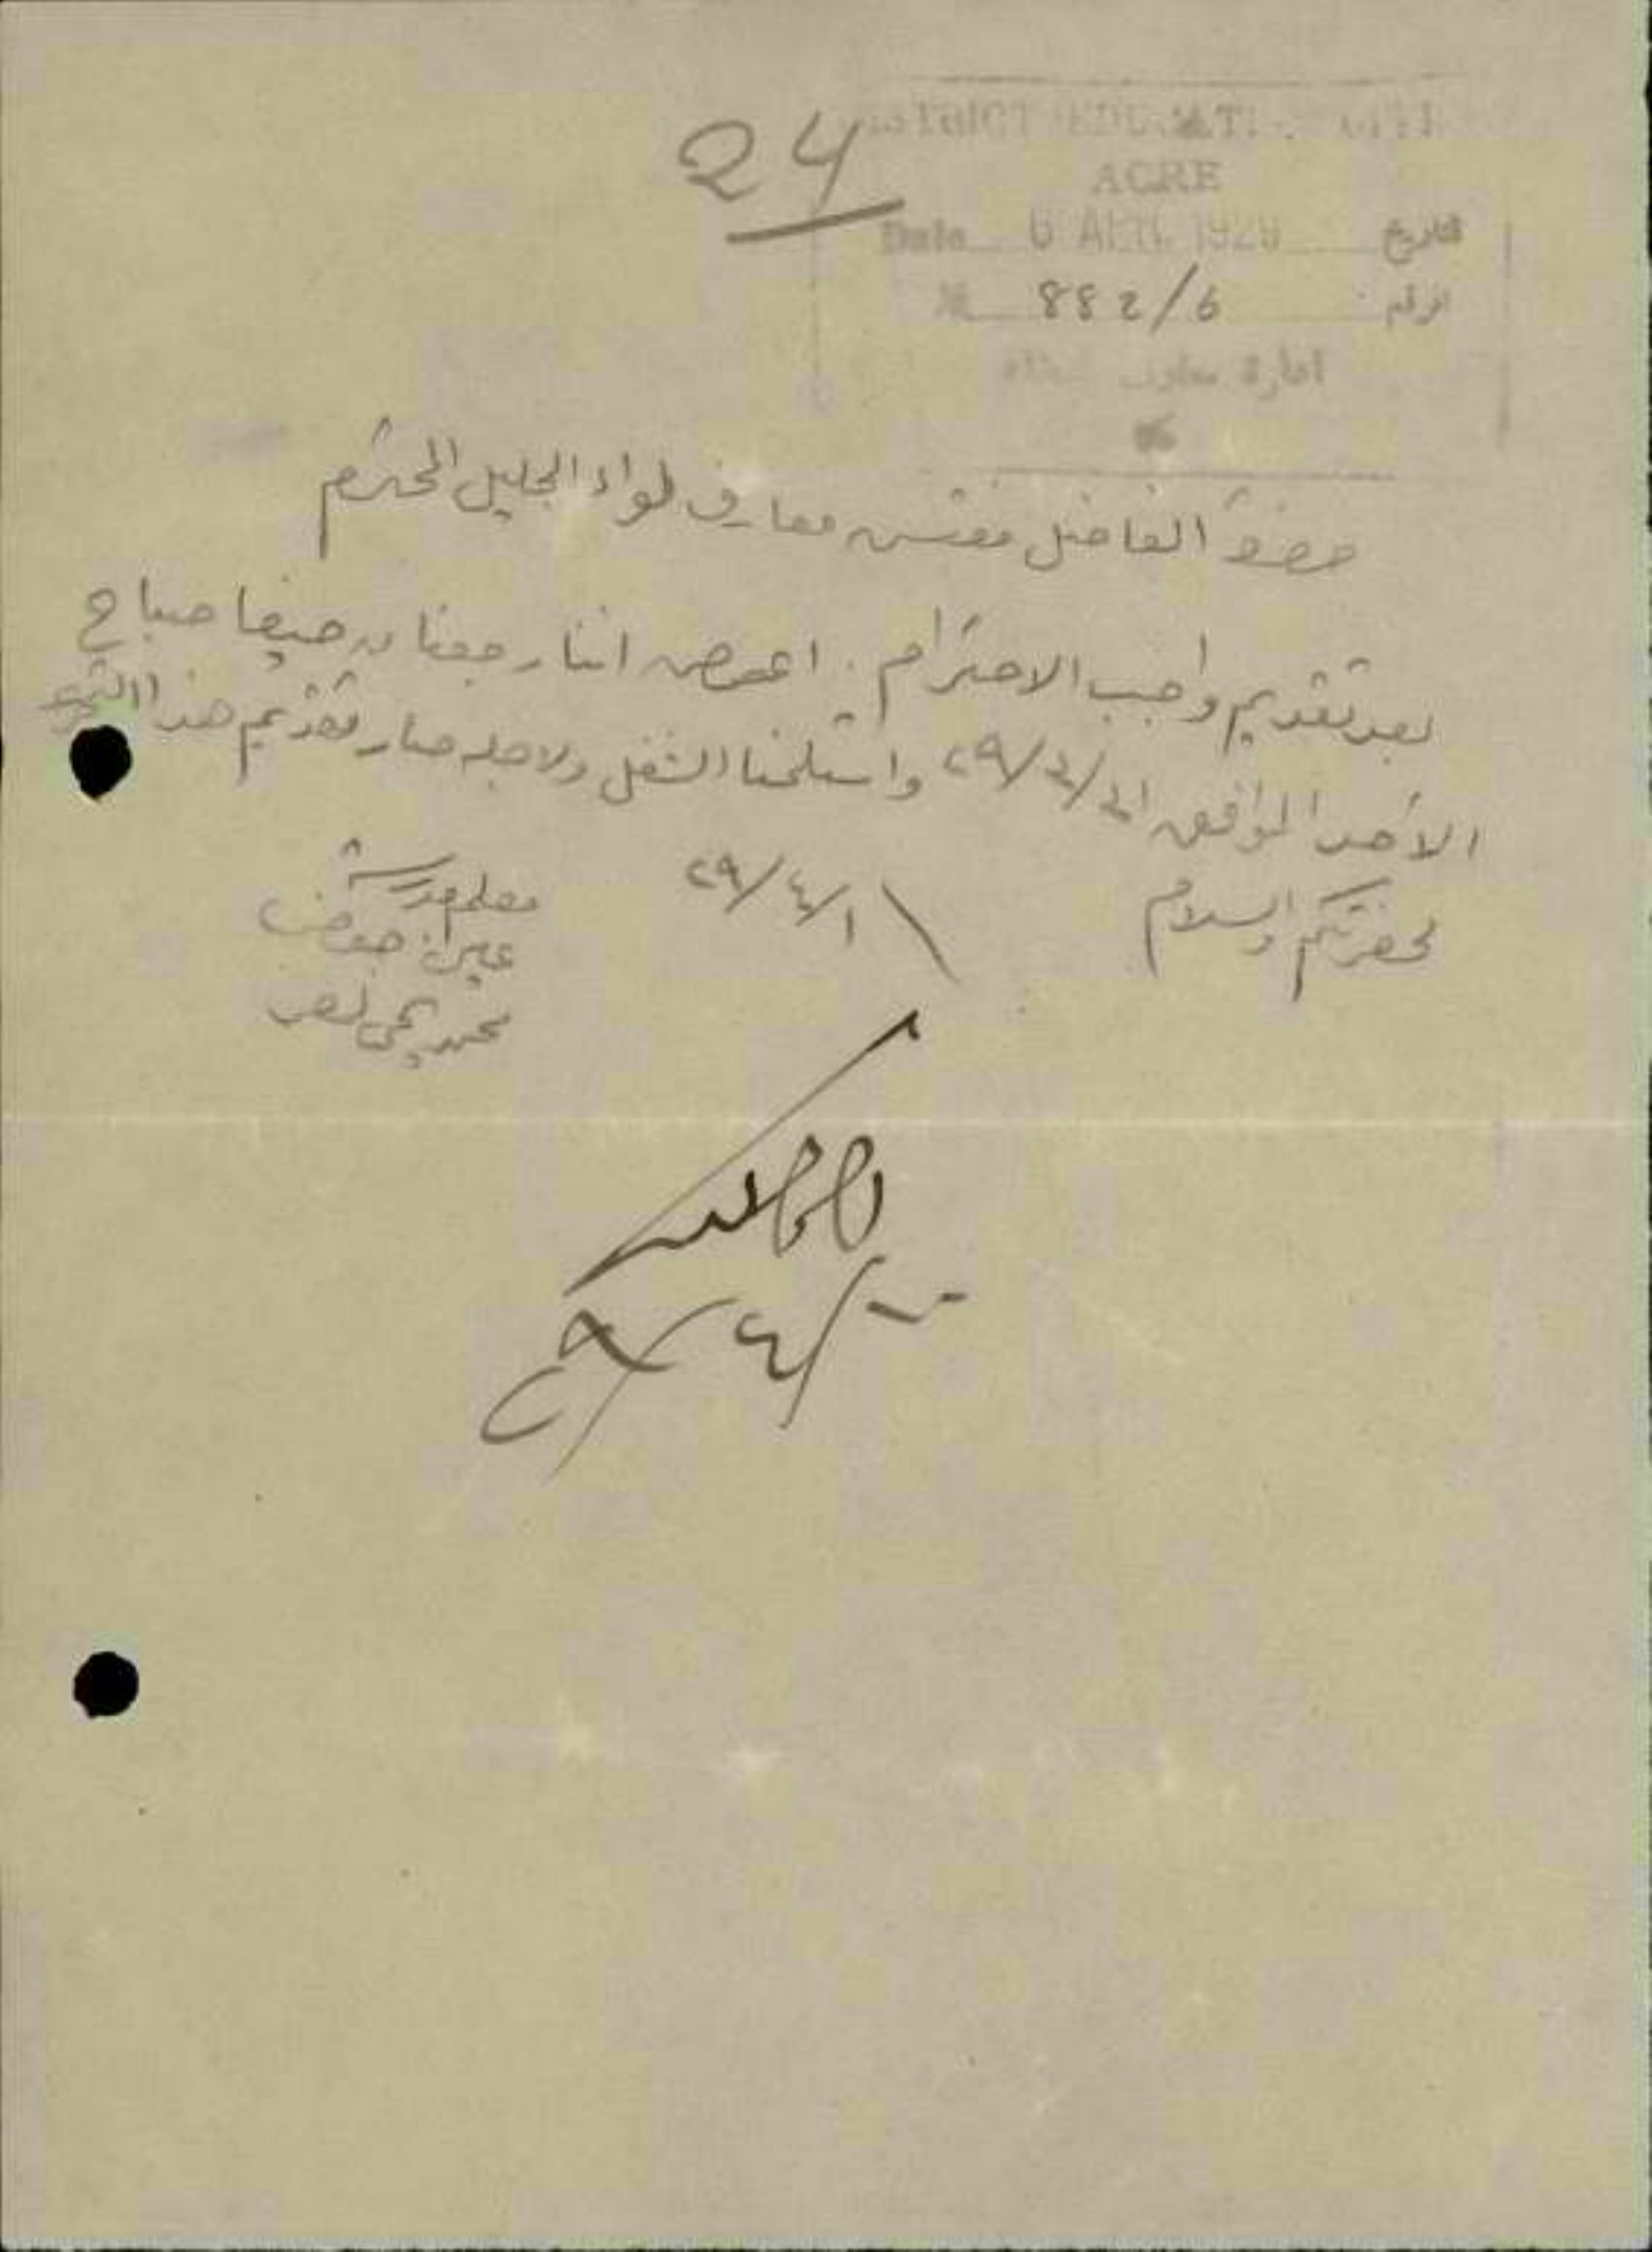 24
DISTRICT EDUCATI OFFI
ACRE
Date 6 APR 1929 التاريخ
№ 882/6 الرقم
ادارة معارف
حضرة الفاضل مفتش معارف لواء الجليل المحترم
بعد تقديم واجب الاحترام. اعرض اننا رجعنا من صباح
الأحد الموافق ٢٩/٣/٣١ واستلمنا الشغل ولاجله صار تقديم هذا
لحضرتكم والسلام ٢٩/٤/١
معلم مدرسة
عين
محمد يحيى
٢٩/٤/